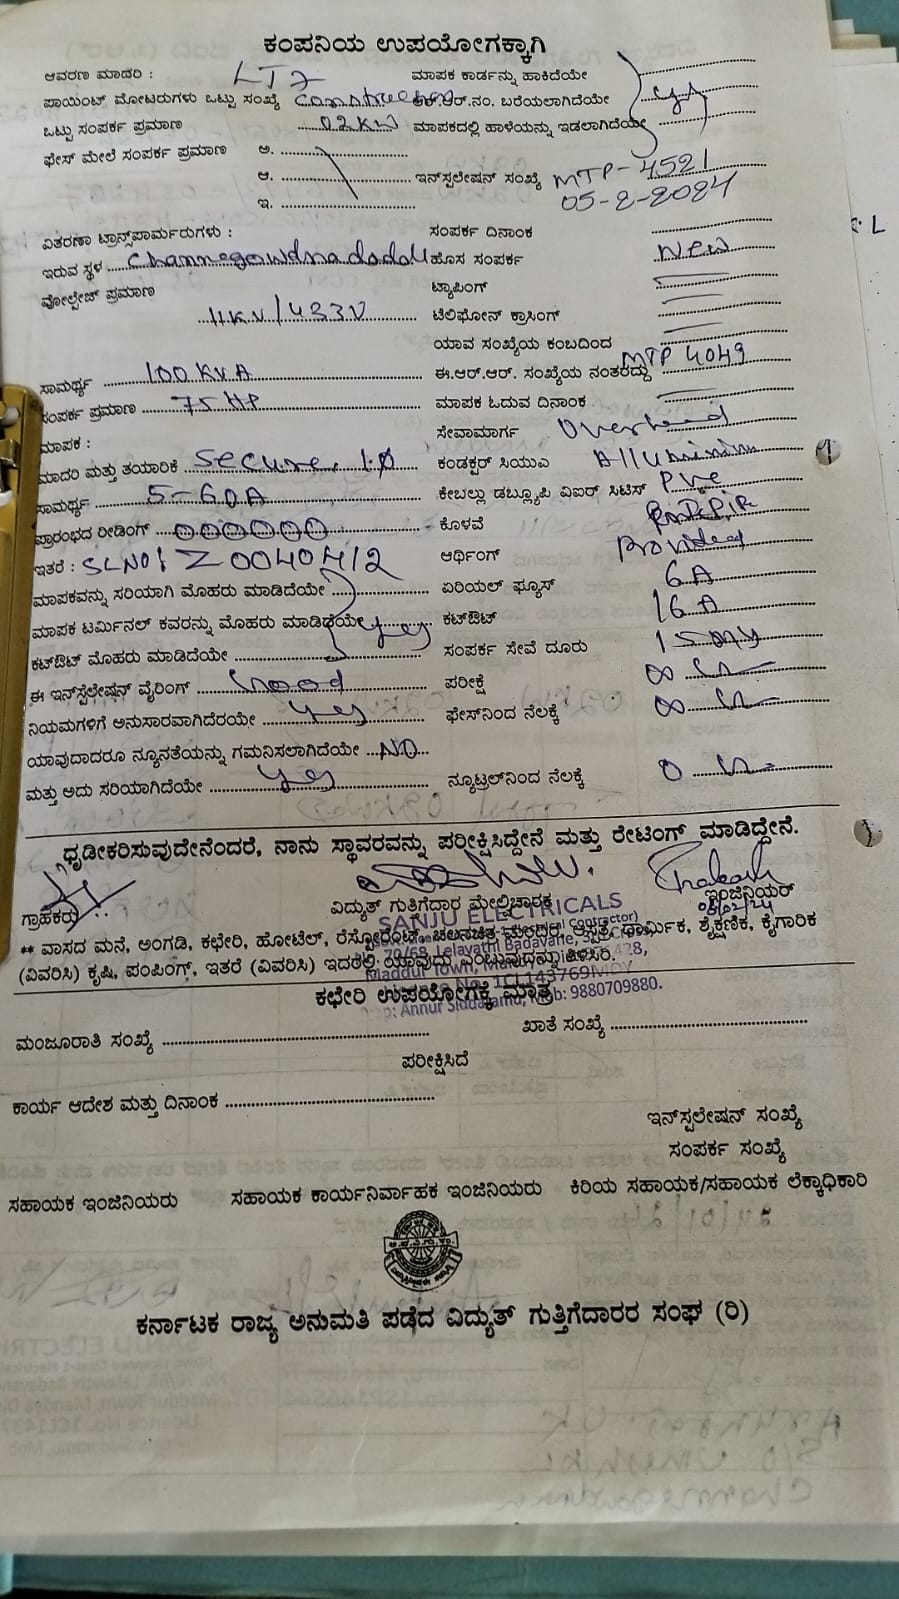 ಕಂಪನಿಯ ಉಪಯೋಗಕ್ಕಾಗಿ
ಆವರಣ ಮಾದರಿ : LT7 ಮಾಪಕ ಕಾರ್ಡನ್ನು ಹಾಕಿದೆಯೇ
ಪಾಯಿಂಟ್ ಮೋಟರುಗಳು ಒಟ್ಟು ಸಂಖ್ಯೆ ಆರ್.ನಂ. ಬರೆಯಲಾಗಿದೆಯೇ yes
ಒಟ್ಟು ಸಂಪರ್ಕ ಪ್ರಮಾಣ 02KW ಮಾಪಕದಲ್ಲಿ ಹಾಳೆಯನ್ನು ಇಡಲಾಗಿದೆಯೇ
ಫೇಸ್ ಮೇಲೆ ಸಂಪರ್ಕ ಪ್ರಮಾಣ ಅ.
ಆ. ಇನ್‌ಸ್ಟಲೇಷನ್ ಸಂಖ್ಯೆ MTP-4521
ಇ. 05-2-2024
ವಿತರಣಾ ಟ್ರಾನ್ಸ್‌ಪಾರ್ಮರುಗಳು : ಸಂಪರ್ಕ ದಿನಾಂಕ
ಇರುವ ಸ್ಥಳ Channegowdnadoddi ಹೊಸ ಸಂಪರ್ಕ New
ವೋಲ್ಟೇಜ್ ಪ್ರಮಾಣ ಟ್ಯಾಪಿಂಗ್
11KV/433V ಟೆಲಿಫೋನ್ ಕ್ರಾಸಿಂಗ್
ಯಾವ ಸಂಖ್ಯೆಯ ಕಂಬದಿಂದ
ಸಾಮರ್ಥ್ಯ 100KVA ಈ.ಆರ್.ಆರ್. ಸಂಖ್ಯೆಯ ನಂತರದ್ದು MTP 4049
ಸಂಪರ್ಕ ಪ್ರಮಾಣ 75 HP ಮಾಪಕ ಓದುವ ದಿನಾಂಕ
ಮಾಪಕ : ಸೇವಾಮಾರ್ಗ Overhead
ಮಾದರಿ ಮತ್ತು ತಯಾರಿಕೆ Secure, 1Ø ಕಂಡಕ್ಟರ್ ಸಿಯುವಿ
ಸಾಮರ್ಥ್ಯ 5-60A ಕೇಬಲ್ಲು ಡಬ್ಲ್ಯೂಪಿ ವಿಐರ್ ಸಿಟಿಸ್ PVC
ಪ್ರಾರಂಭದ ರೀಡಿಂಗ್ 000000 ಕೊಳವೆ
ಇತರೆ : SLNO: Z0040412 ಆರ್ಥಿಂಗ್ Provided
ಮಾಪಕವನ್ನು ಸರಿಯಾಗಿ ಮೊಹರು ಮಾಡಿದೆಯೇ ಏರಿಯಲ್ ಫ್ಯೂಸ್ 6A
ಮಾಪಕ ಟರ್ಮಿನಲ್ ಕವರನ್ನು ಮೊಹರು ಮಾಡಿದೆಯೇ yes ಕಟ್‌ಔಟ್ 16A
ಕಟ್‌ಔಟ್ ಮೊಹರು ಮಾಡಿದೆಯೇ ಸಂಪರ್ಕ ಸೇವೆ ದೂರು
ಈ ಇನ್‌ಸ್ಟಲೇಷನ್ ವೈರಿಂಗ್ Good ಪರೀಕ್ಷೆ
ನಿಯಮಗಳಿಗೆ ಅನುಸಾರವಾಗಿದೆರಯೇ yes ಫೇಸ್‌ನಿಂದ ನೆಲಕ್ಕೆ
ಯಾವುದಾದರೂ ನ್ಯೂನತೆಯನ್ನು ಗಮನಿಸಲಾಗಿದೆಯೇ NO
ಮತ್ತು ಅದು ಸರಿಯಾಗಿದೆಯೇ yes ನ್ಯೂಟ್ರಲ್‌ನಿಂದ ನೆಲಕ್ಕೆ
ಧೃಡೀಕರಿಸುವುದೇನೆಂದರೆ, ನಾನು ಸ್ಥಾವರವನ್ನು ಪರೀಕ್ಷಿಸಿದ್ದೇನೆ ಮತ್ತು ರೇಟಿಂಗ್ ಮಾಡಿದ್ದೇನೆ.
ಗ್ರಾಹಕರು ವಿದ್ಯುತ್ ಗುತ್ತಿಗೆದಾರ ಮೇಲ್ವಿಚಾರಕ ಇಂಜಿನಿಯರ್
SANJU ELECTRICALS
** ವಾಸದ ಮನೆ, ಅಂಗಡಿ, ಕಛೇರಿ, ಹೋಟೆಲ್, ರೆಸ್ಟೋರೆಂಟ್, ಚಲನಚಿತ್ರ ಮಂದಿರ, ಆಸ್ಪತ್ರೆ, ಧಾರ್ಮಿಕ, ಶೈಕ್ಷಣಿಕ, ಕೈಗಾರಿಕ
(ವಿವರಿಸಿ) ಕೃಷಿ, ಪಂಪಿಂಗ್, ಇತರೆ (ವಿವರಿಸಿ) ಇದರಲ್ಲಿ ಯಾವುದು ಎಂಬುವುದನ್ನು ತಿಳಿಸಿರಿ.
ಕಛೇರಿ ಉಪಯೋಗಕ್ಕೆ ಮಾತ್ರ
Mob: 9880709880.
ಮಂಜೂರಾತಿ ಸಂಖ್ಯೆ ಖಾತೆ ಸಂಖ್ಯೆ
ಪರೀಕ್ಷಿಸಿದೆ
ಕಾರ್ಯ ಆದೇಶ ಮತ್ತು ದಿನಾಂಕ
ಇನ್‌ಸ್ಟಲೇಷನ್ ಸಂಖ್ಯೆ
ಸಂಪರ್ಕ ಸಂಖ್ಯೆ
ಸಹಾಯಕ ಇಂಜಿನಿಯರು ಸಹಾಯಕ ಕಾರ್ಯನಿರ್ವಾಹಕ ಇಂಜಿನಿಯರು ಕಿರಿಯ ಸಹಾಯಕ/ಸಹಾಯಕ ಲೆಕ್ಕಾಧಿಕಾರಿ
ಕರ್ನಾಟಕ ರಾಜ್ಯ ಅನುಮತಿ ಪಡೆದ ವಿದ್ಯುತ್ ಗುತ್ತಿಗೆದಾರರ ಸಂಘ (ರಿ)